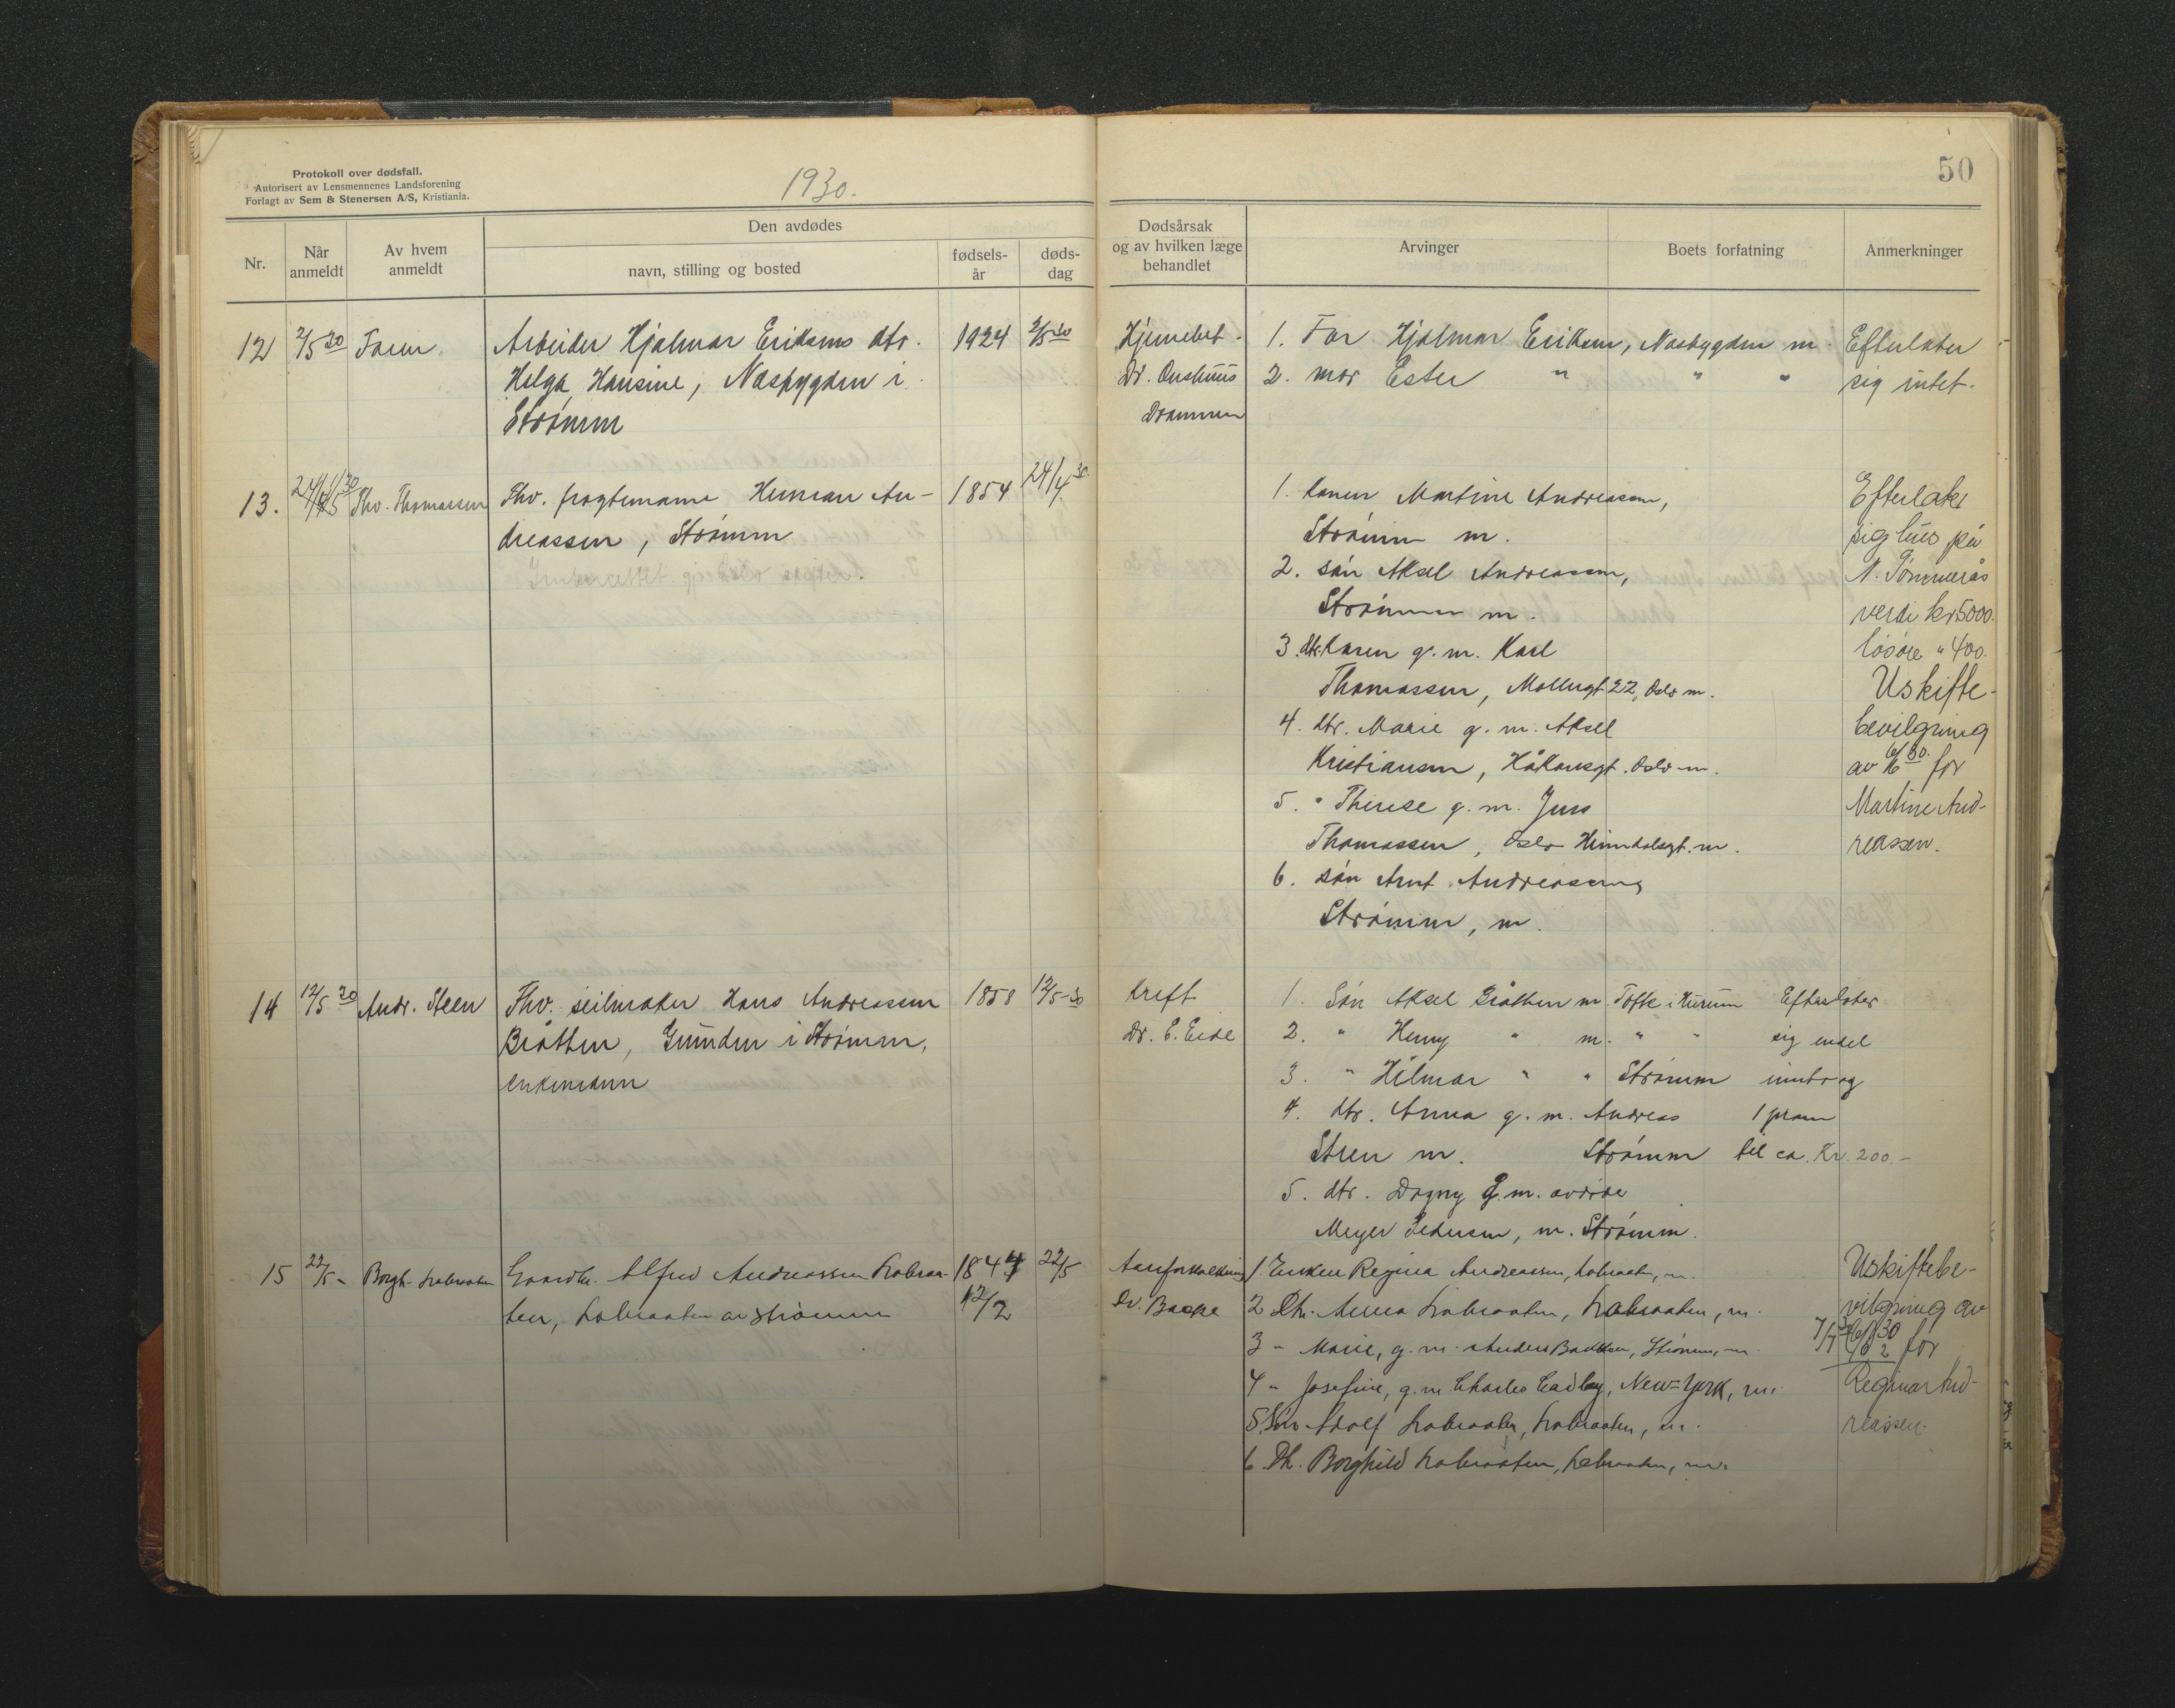 Protokoll over dødsfall.
Autorisert av Lensmennenes Landsforening
Forlagt av Sem & Stenersen A/S, Kristiania.
1930.
50
Nr.
Når anmeldt
Av hvem anmeldt
Den avdødes
navn, stilling og bosted
fødsels-år
døds-dag
Dødsårsak og av hvilken læge behandlet
Arvinger
Boets forfatning
Anmerkninger
12 2/5 30 Faren
Arbeider Hjalmar Eriksens dtr.
Helga Hansine, Næsbygden i
Strømm
1924 2/5 30
Hjernebet.
Dr.
Drammen
1. Far Hjalmar Eriksen, Næsbygden m.
2. mor Ester " " "
Efterlater
sig intet.
13. Thv. Thomassen
Fhv. fragtemann Herman An-
dreassen, Strømm
1854 24/4 30.
1. Konen Martine Andreassen,
Strømm m.
2. søn Aksel Andreassen,
Strømm m.
3. dtr. Karen g. m. Karl
Thomassen, Mollergt 22, Oslo m.
4. dtr. Marie g. m. Aksel
Kristiansen, Håkonsgt. Oslo m.
5. " Therese g. m. Jens
Thomassen, Oslo Heimdalsgt. m.
6. søn Arnt Andreassen,
Strømm, m.
Efterlater
sig hus på
N. Tømmerås
verdi kr. 5000.
løsøre " 400.
Uskifte-
bevilgning
av 6/6 30. for
Martine And-
reassen.
14 12/5 30 Andr. Steen
Fhv. seilmaker Hans Andreassen
Bråthen, Grunden i Strømm,
enkemann
1858 12/5-30
Kreft
Dr. E. Eide
1. Søn Aksel Bråthen m. Tofte i Hurum
2. " Henry " m. " "
3. " Hilmar " " Strømm
4. dtr. Anna g. m. Andreas
Steen m. Strømm
5. dtr. Dagny g. m. avdøde
Meyer Pedersen, m. Strømm.
Efterlater
sig endel
innbo og
1 pram
til ca. Kr. 200.-
15 22/5 - Borgh. Labraaten
Gaardbr. Alfred Andreassen Labraa-
ten, Labraaten av Strømm
1844 22/5
12/2
Aareforkalkning
Dr. Backe
1 Enken Regina Andreassen, Labraaten, m.
2 Dtr. Anna Labraaten, Labraaten, m.
3 " Marie, g. m. Anders Bakken, Strømm, m.
4 " Josefine, g. m. Charles Eadley, New-York, m.
5 Søn Adolf Labraaten, Labraaten, m.
6 Dtr. Borghild Labraaten, Labraaten, m.
Uskiftebe-
vilgning av
for
Regina And-
reassen.